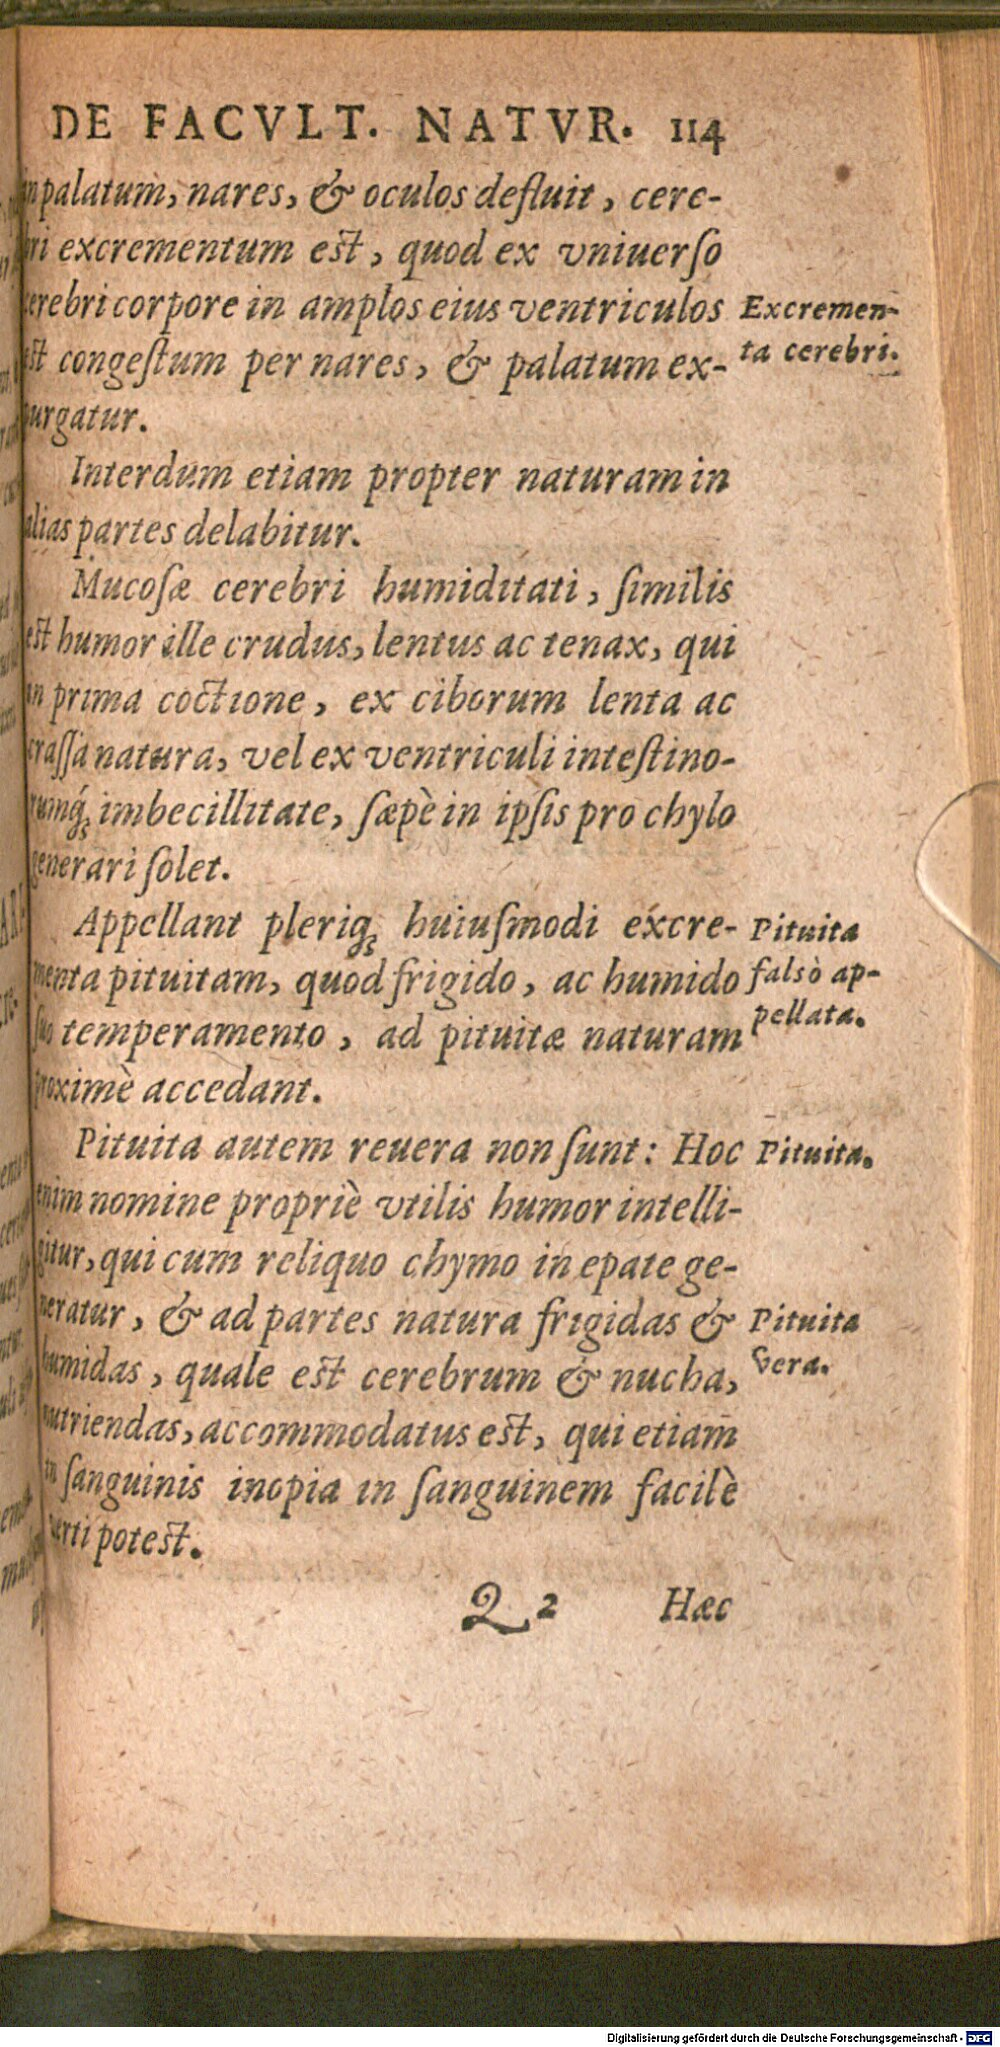 DE FACVLT. NATVR. 114
in palatum, nares, & oculos defluit, cere-
bri excrementum est, quod ex vniuerſo
cerebri corpore in amplos eius ventriculos
est congeſtum per nares, & palatum ex-
purgatur.
Excremen-
ta cerebri.
Interdum etiam propter naturam in
alias partes delabitur.
Mucoſæ cerebri humiditati, ſimilis
est humor ille crudus, lentus ac tenax, qui
in prima coctione, ex ciborum lenta ac
craſſa natura, vel ex ventriculi inteſtino-
rumq́; imbecillitate, ſæpè in ipſis pro chylo
generari ſolet.
Appellant pleriq; huiuſmodi excre-
menta pituitam, quod frigido, ac humido
ſuo temperamento, ad pituitæ naturam
proximè accedant.
Pituita
falsò ap-
pellata.
Pituita autem reuera non ſunt: Hoc
enim nomine propriè vtilis humor intelli-
gitur, qui cum reliquo chymo in epate ge-
neratur, & ad partes natura frigidas &
humidas, quale est cerebrum & nucha,
nutriendas, accommodatus est, qui etiam
in ſanguinis inopia in ſanguinem facilè
verti potest.
Pituita.
Pituita
vera.
Q 2 Hæc
Digitalisierung gefördert durch die Deutsche Forschungsgemeinschaft - DFG